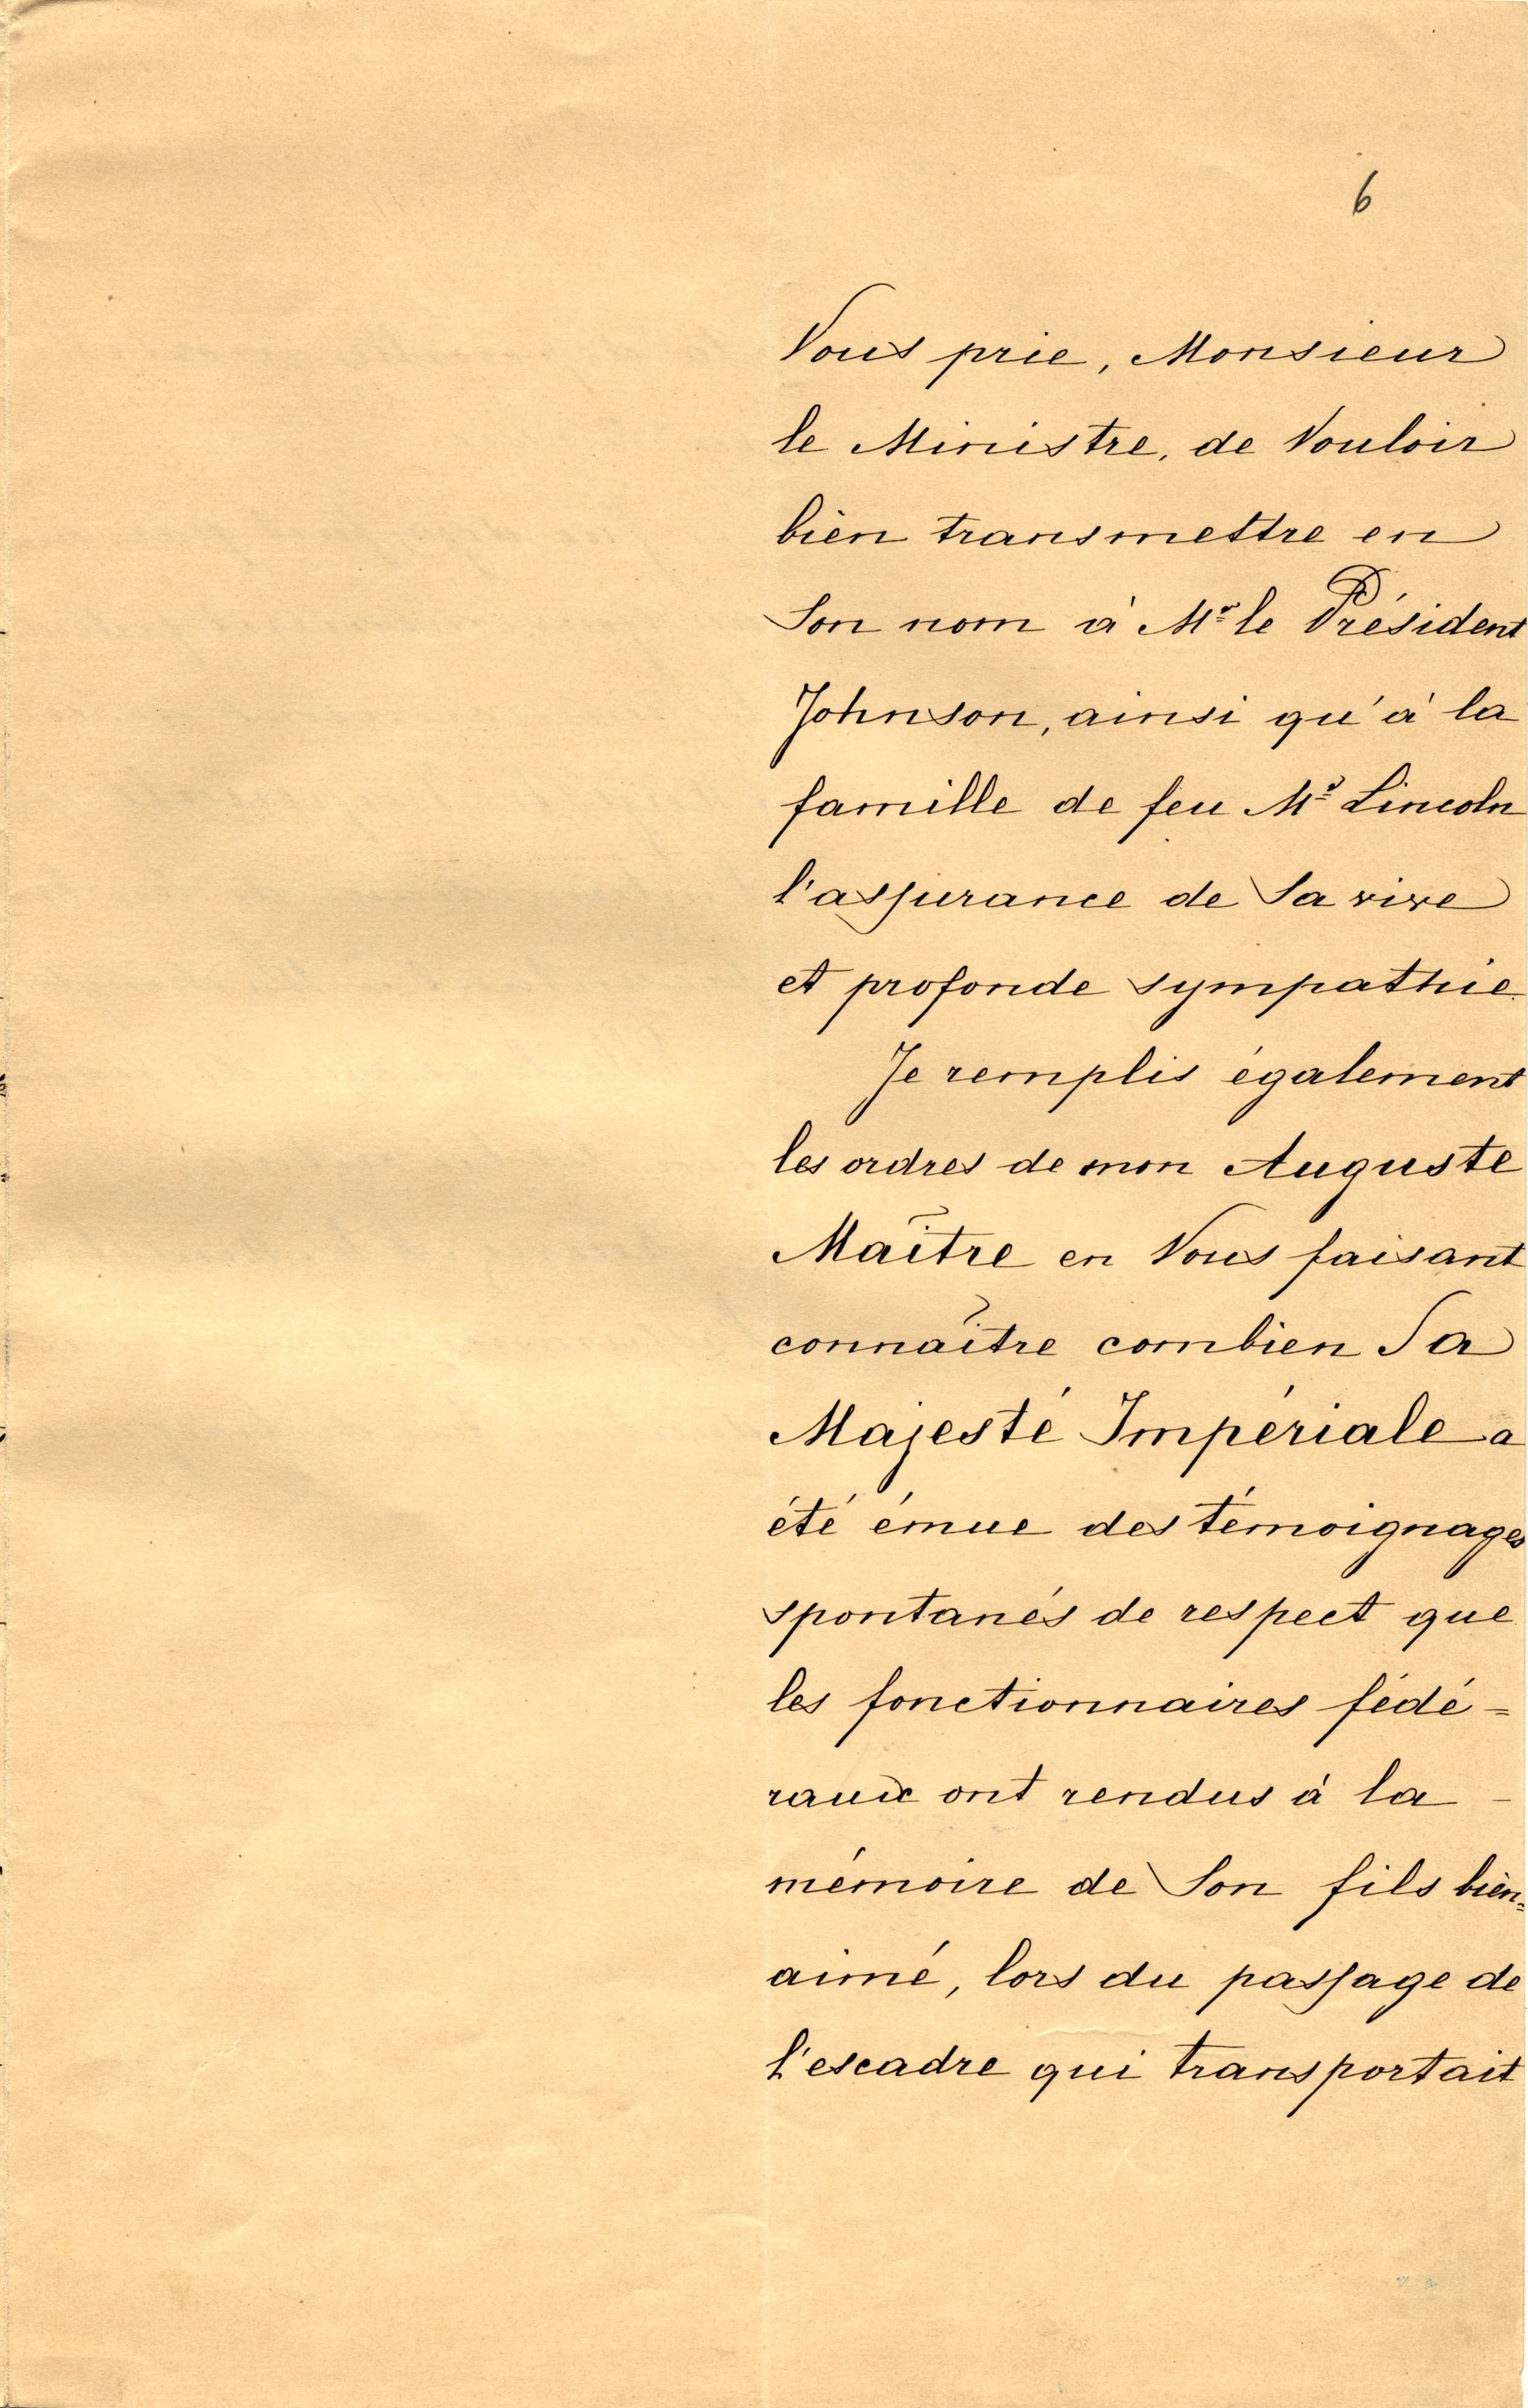 6
Vous prie, Monsieur
le Ministre, de Vouloir
bien transmettre en
Son nom à Mr le Président
Johnson, ainsi qu'à la
famille de feu Mr Lincoln
l'assurance de Sa vive
et profonde sympathie.
Je remplis également
les ordres de mon Auguste
Maître en Vous faisant
connaître combien Sa
Majesté Impériale a
été émue des témoignages
spontanés de respect que
les fonctionnaires fédé=
raux ont rendus à la
mémoire de Son fils bien=
aimé, lors du passage de
l'escadre qui transportait